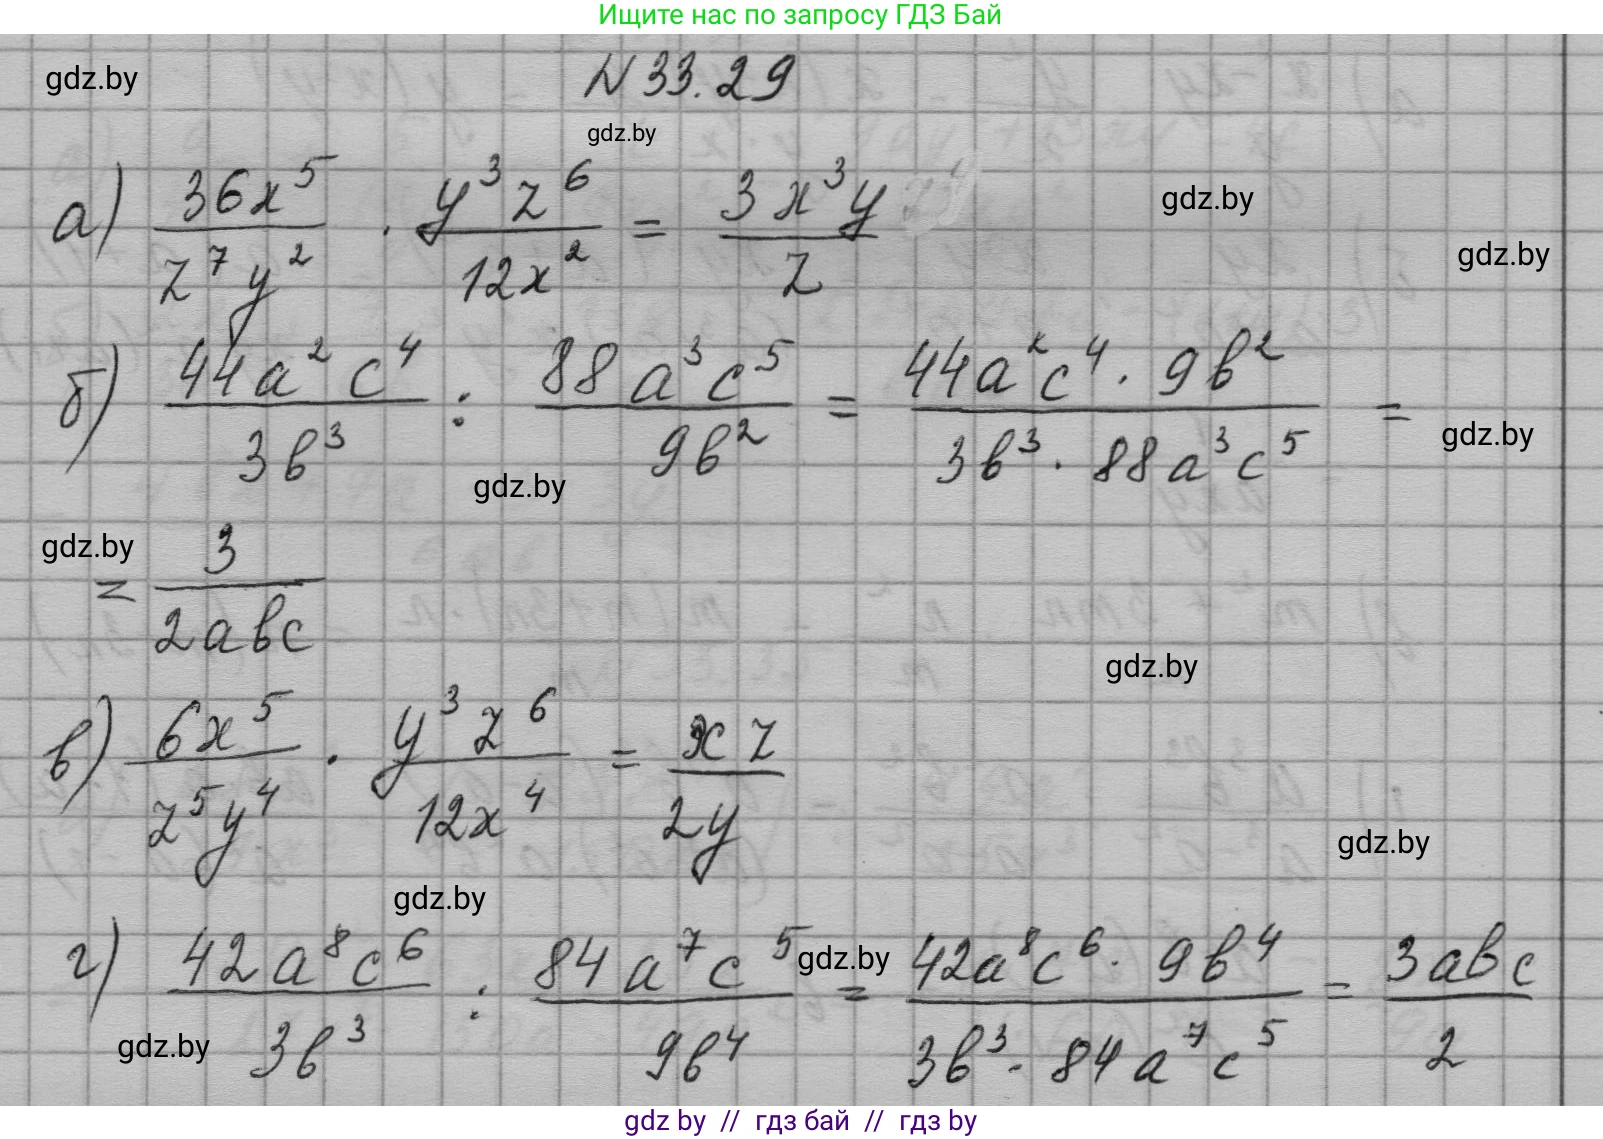 Ищите нас по запросу ГДЗ Бай
gdz.by
N 33.29
gdz.by
а) 36x^5 / z^7 y^2 · y^3 z^6 / 12x^2 = 3x^3 y / z
gdz.by
gdz.by
б) 44a^2 c^4 / 3b^3 : 88a^3 c^5 / 9b^2 = 44a^2 c^4 · 9b^2 / 3b^3 · 88a^3 c^5 =
gdz.by
gdz.by
gdz.by
= 3 / 2abc
gdz.by
в) 6x^5 / z^5 y^4 · y^3 z^6 / 12x^4 = xz / 2y
gdz.by
gdz.by
г) 42a^8 c^6 / 3b^3 : 84a^7 c^5 / 9b^4 = 42a^8 c^6 · 9b^4 / 3b^3 · 84a^7 c^5 = 3abc / 2
gdz.by
gdz.by
gdz by // гдз бай // гдз by